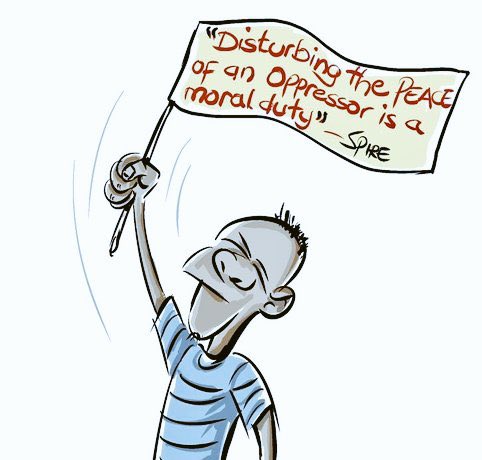 "Disturbing the PEACE
of an Oppressor is a
moral duty" - SPIRE